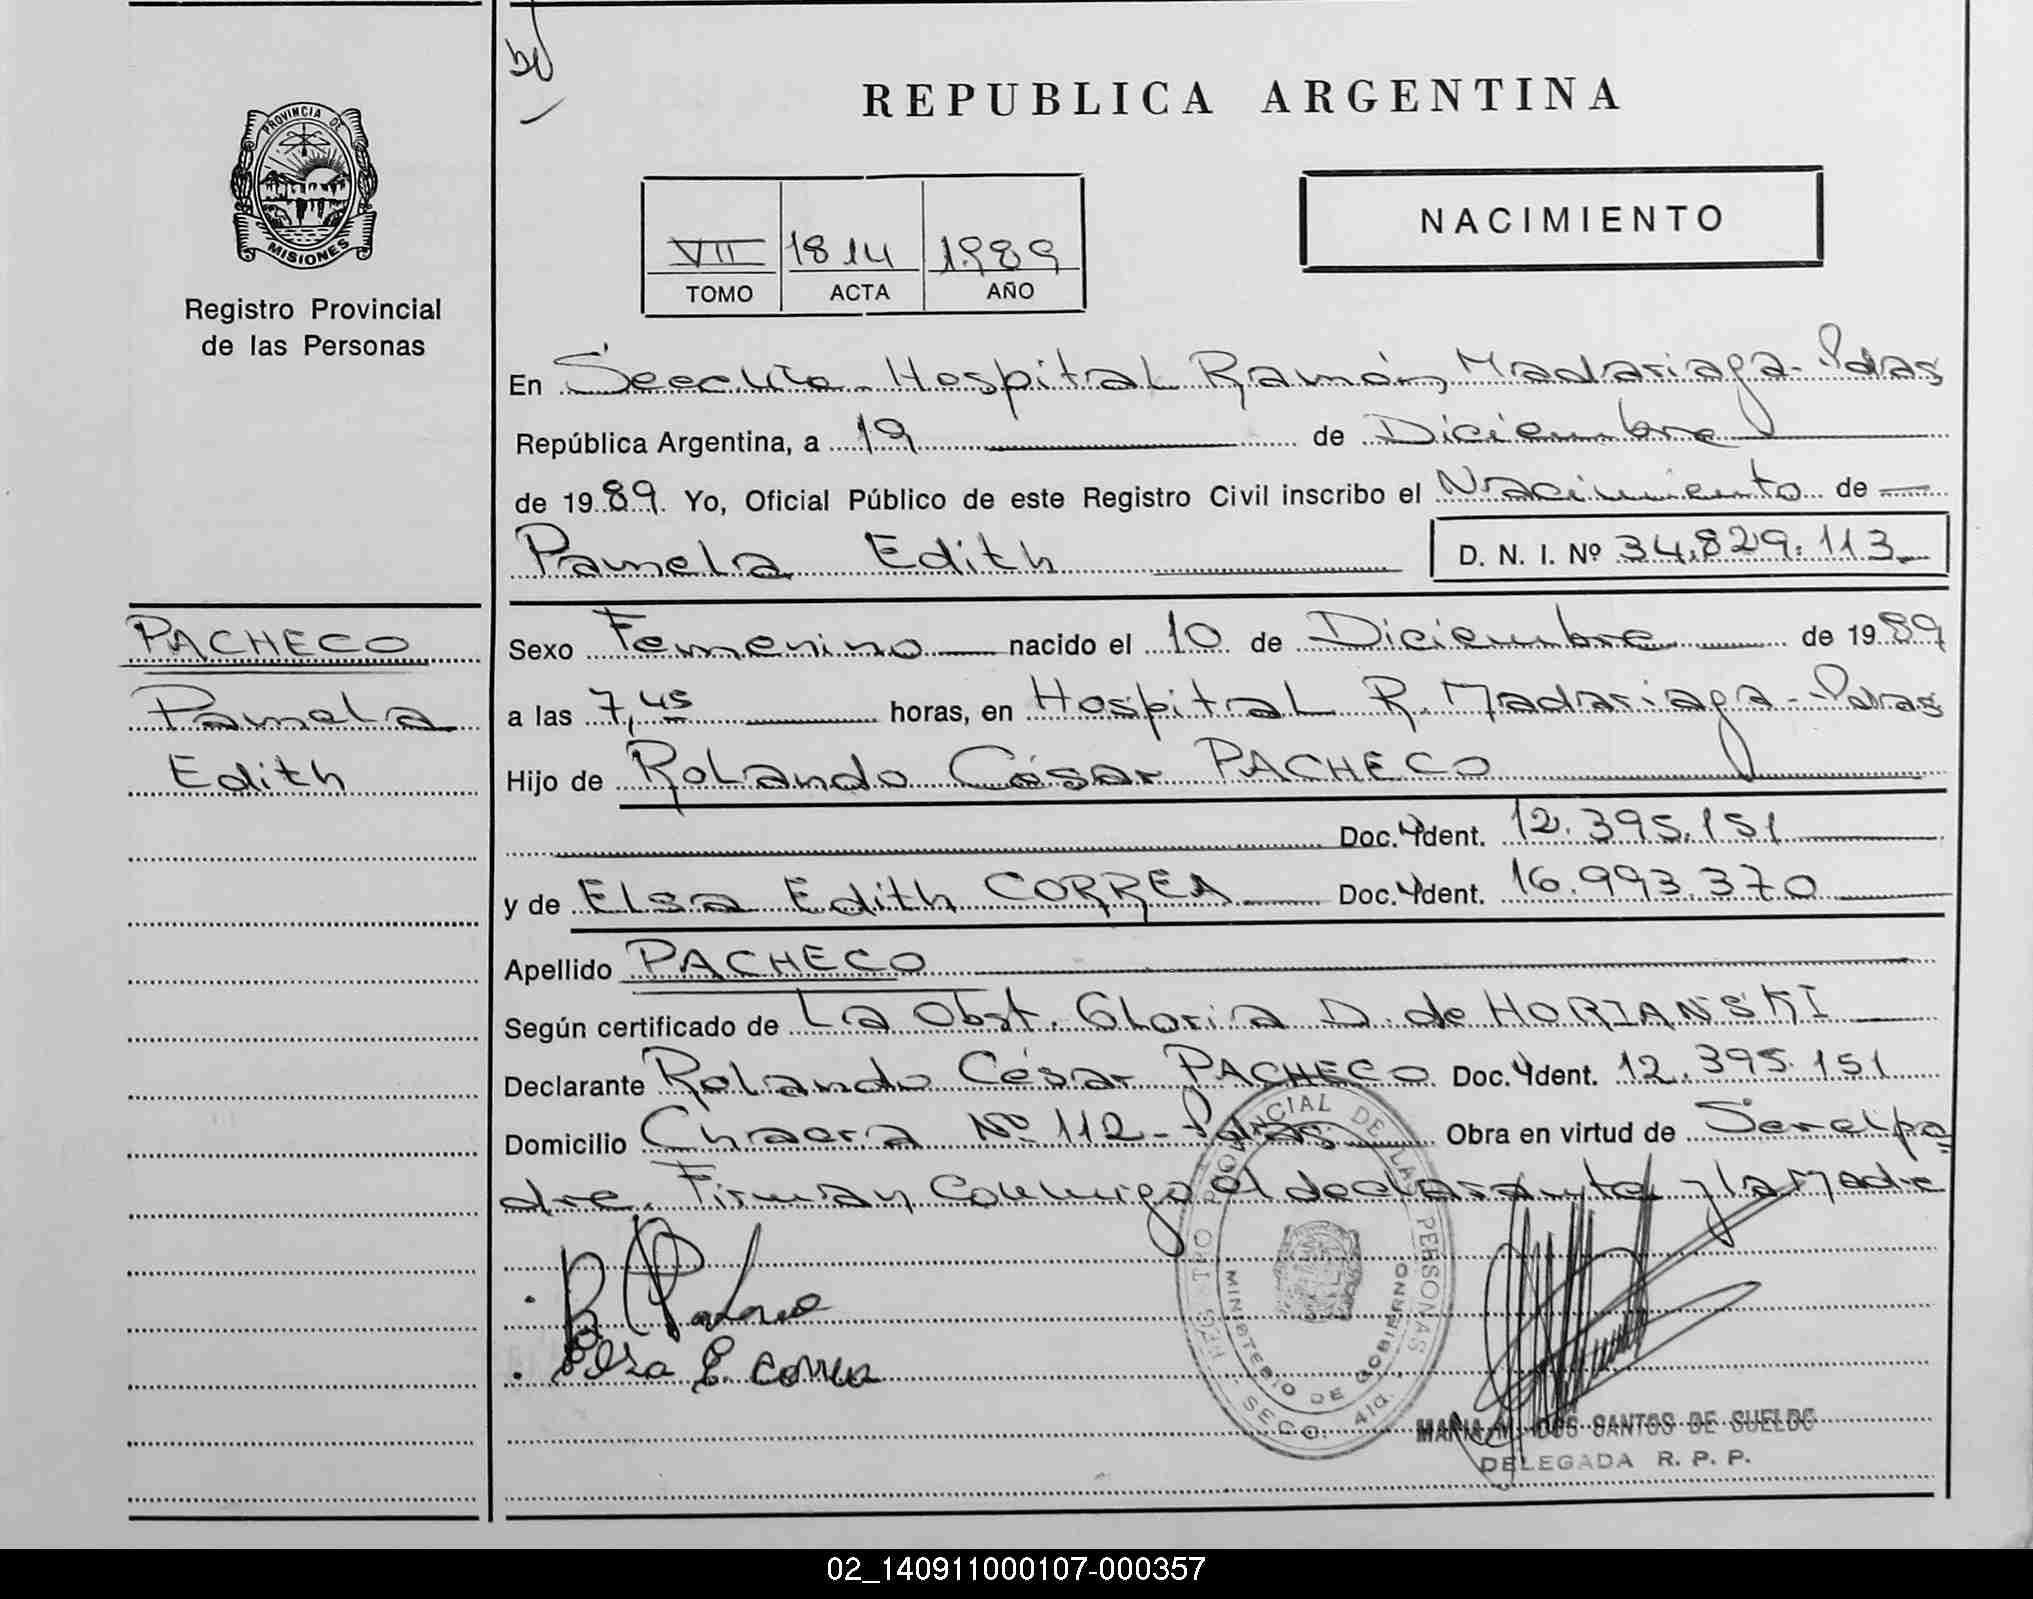 REPUBLICA ARGENTINA
PROVINCIA DE
MISIONES
Registro Provincial
de las Personas
NACIMIENTO
VII 1814 1989
TOMO ACTA AÑO
En Hospital Ramón Madariaga - Pdas
República Argentina, a 19 de Diciembre
de 1989. Yo, Oficial Público de este Registro Civil inscribo el Nacimiento de
Pamela Edith D. N. I. Nº 34.829.113
PACHECO
Pamela
Edith
Sexo Femenino nacido el 10 de Diciembre de 1989
a las 7,45 horas, en Hospital R. Madariaga - Pdas
Hijo de Rolando César PACHECO
Doc. Ident. 12.395.151
y de Elsa Edith CORREA Doc. Ident. 16.993.370
Apellido PACHECO
Según certificado de La Obst. Gloria D. de HORIANSKI
Declarante Rolando César PACHECO Doc. Ident. 12.395.151
Domicilio Chacra Nº 112 - Pdas Obra en virtud de Ser el pa
dre. Firman conmigo el declarante y la Madre
Elsa E. Correa
REGISTRO PROVINCIAL DE LAS PERSONAS
MINISTERIO DE GOBIERNO
MARIA M. DOS SANTOS DE SUELDO
DELEGADA R. P. P.
02_140911000107-000357